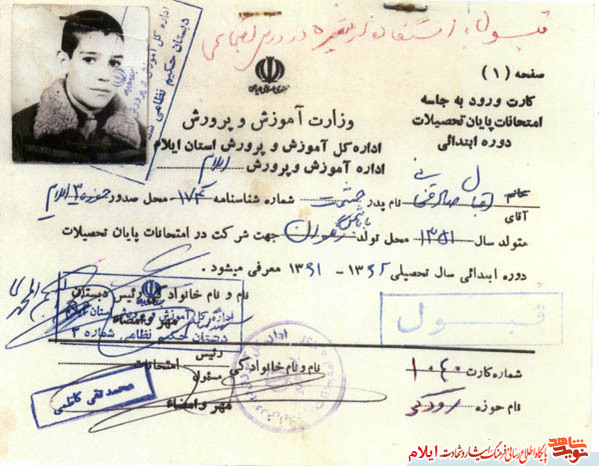 قبول با استفاده از تبصره در درس اجتماعی
صفحه (۱)
کارت ورود به جلسه
امتحانات پایان تحصیلات
دوره ابتدائی
وزارت آموزش و پرورش
اداره کل آموزش و پرورش استان ایلام
اداره آموزش و پرورش ایلام
اداره کل آموزش و پرورش
دبستان حکیم نظامی
خانم
آقای اقبال صادقی نام پدر حشمت شماره شناسنامه ۱۷۴ محل صدور ۳ ایلام
متولد سال ۱۳۵۱ محل تولد جهت شرکت در امتحانات پایان تحصیلات
دوره ابتدائی سال تحصیلی ۱۳۶۲ - ۱۳۶۱ معرفی میشود .
نام و نام خانوادگی رئیس دبستان
مهر و امضاء
اداره کل آموزش و پرورش استان ایلام
دبستان حکیم نظامی شماره ۲
قبول
شماره کارت ۱۰۴۰
نام حوزه رودکی
نام و نام خانوادگی رئیس
مسئول امتحانات
مهر و امضاء
محمد تقی کاظمی
نوید شاهد
پایگاه اطلاع رسانی فرهنگ ایثار و شهادت ایلام